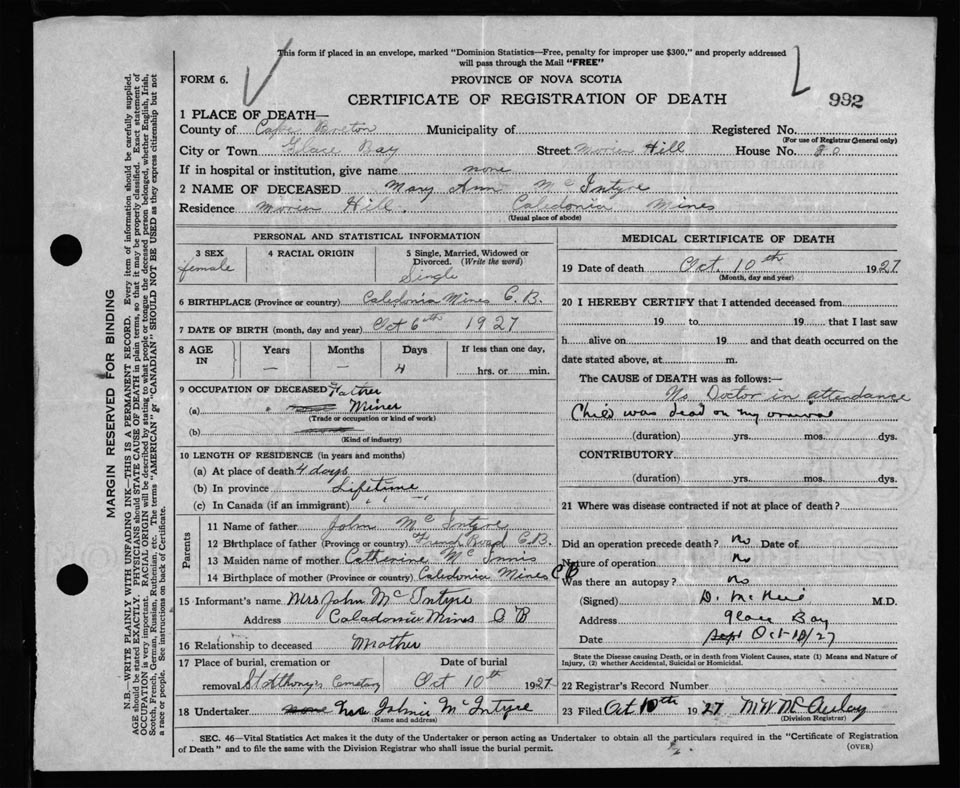 This form if placed in an envelope, marked "Dominion Statistics—Free, penalty for improper use $300," and properly addressed
will pass through the Mail "FREE"
FORM 6.
PROVINCE OF NOVA SCOTIA
CERTIFICATE OF REGISTRATION OF DEATH
992
1 PLACE OF DEATH—
County of Cape Breton Municipality of Registered No.
(For use of Registrar General only)
City or Town Glace Bay Street Morien Hill House No. 80
If in hospital or institution, give name none
2 NAME OF DECEASED Mary Ann McIntyre
Residence Morien Hill, Caledonia Mines
(Usual place of abode)
PERSONAL AND STATISTICAL INFORMATION
3 SEX 4 RACIAL ORIGIN 5 Single, Married, Widowed or
Divorced. (Write the word)
female Single
6 BIRTHPLACE (Province or country) Caledonia Mines C.B.
7 DATE OF BIRTH (month, day and year) Oct 6th 1927
8 AGE IN Years Months Days If less than one day,
— — 4 hrs. or min.
9 OCCUPATION OF DECEASED Father
(a) Miner
(Trade or occupation or kind of work)
(b)
(Kind of industry)
10 LENGTH OF RESIDENCE (in years and months)
(a) At place of death 4 days
(b) In province Lifetime
(c) In Canada (if an immigrant) " "
Parents
11 Name of father John McIntyre
12 Birthplace of father (Province or country) French Road C.B.
13 Maiden name of mother Catherine McInnis
14 Birthplace of mother (Province or country) Caledonia Mines CB
15 Informant's name Mrs John McIntyre
Address Caladonia Mines CB
16 Relationship to deceased Mother
17 Place of burial, cremation or Date of burial
removal St Athony's Cemetary Oct 10th 1927
18 Undertaker none John McIntyre
(Name and address)
MEDICAL CERTIFICATE OF DEATH
19 Date of death Oct. 10th 1927
(Month, day and year)
20 I HEREBY CERTIFY that I attended deceased from
19 to 19 that I last saw
h alive on 19 and that death occurred on the
date stated above, at m.
The CAUSE OF DEATH was as follows:—
No Doctor in attendance
Child was dead on my arrival
(duration) yrs. mos. dys.
CONTRIBUTORY
(duration) yrs. mos. dys.
21 Where was disease contracted if not at place of death?
Did an operation precede death? no Date of
Nature of operation no
Was there an autopsy? no
(Signed) D. M.D.
Address Glace Bay
Date Sept Oct 10/27
State the Disease causing Death, or in death from Violent Causes, state (1) Means and Nature of
Injury, (2) whether Accidental, Suicidal or Homicidal.
22 Registrar's Record Number
23 Filed Oct 10th 1927 M W McAulay
(Division Registrar)
SEC. 46—Vital Statistics Act makes it the duty of the Undertaker or person acting as Undertaker to obtain all the particulars required in the "Certificate of Registration
of Death" and to file the same with the Division Registrar who shall issue the burial permit.
(OVER)
MARGIN RESERVED FOR BINDING
N.B.—WRITE PLAINLY WITH UNFADING INK—THIS IS A PERMANENT RECORD. Every item of information should be carefully supplied.
AGE should be stated EXACTLY. PHYSICIANS should STATE CAUSE OF DEATH in plain terms, so that it may be properly classified. Exact statement of
OCCUPATION is very important. RACIAL ORIGIN will be described by stating to what people or tongue the deceased person belonged, whether English, Irish,
Scotch, French, German, Russian, Ruthenian, etc. The terms "AMERICAN" or "CANADIAN" SHOULD NOT BE USED as they express citizenship but not
a race or people. See instructions on back of Certificate.